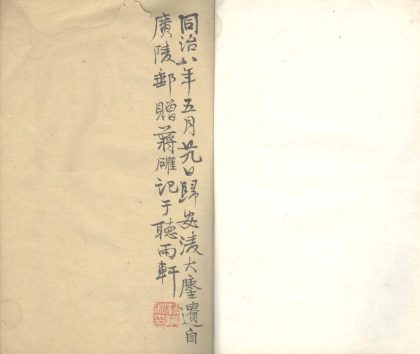 同治八年五月廿八日歸安淩大鏖遺自
廣陵郵贈蔣確記于聽雨軒